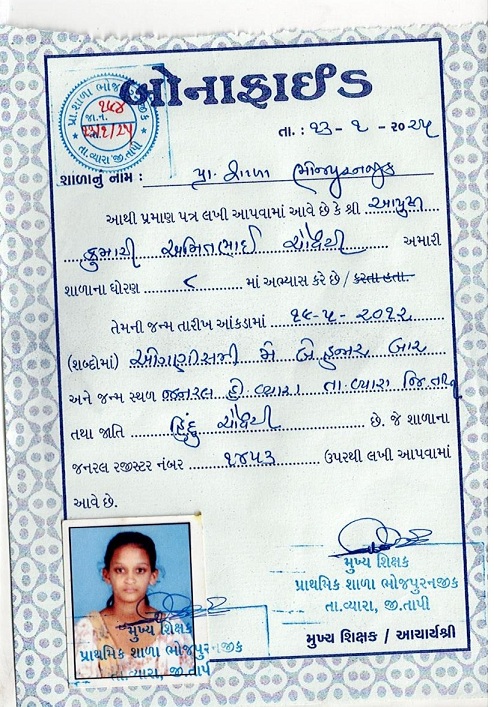 બોનાફાઈડ
પ્રા. શાળા ભોજપુરનજીક
જા.નં. ૧૫૪
તા. ૨૩/૧/૨૫
તા.વ્યારા જી.તાપી
તા. : ૨૩ - ૧ - ૨૦૨૫
શાળાનું નામ : પ્રા. શાળા ભોજપુરનજીક
આથી પ્રમાણ પત્ર લખી આપવામાં આવે છે કે શ્રી
કુમારી અમિતભાઈ ચૌધરી અમારી
શાળાના ધોરણ ૮ માં અભ્યાસ કરે છે / કરતા હતા.
તેમની જન્મ તારીખ આંકડામાં ૧૯-૫-૨૦૧૨
(શબ્દોમાં) ઓગણીસમી મે બે હજાર બાર
અને જન્મ સ્થળ જનરલ હો વ્યારા તા.વ્યારા જિ.તાપી
તથા જાતિ હિંદુ ચૌધરી છે. જે શાળાના
જનરલ રજીસ્ટર નંબર ૧૪૫૩ ઉપરથી લખી આપવામાં
આવે છે.
મુખ્ય શિક્ષક
પ્રાથમિક શાળા ભોજપુરનજીક
તા.વ્યારા, જી.તાપી
મુખ્ય શિક્ષક / આચાર્યશ્રી
મુખ્ય શિક્ષક
પ્રાથમિક શાળા ભોજપુરનજીક
તા.વ્યારા, જી.તાપી